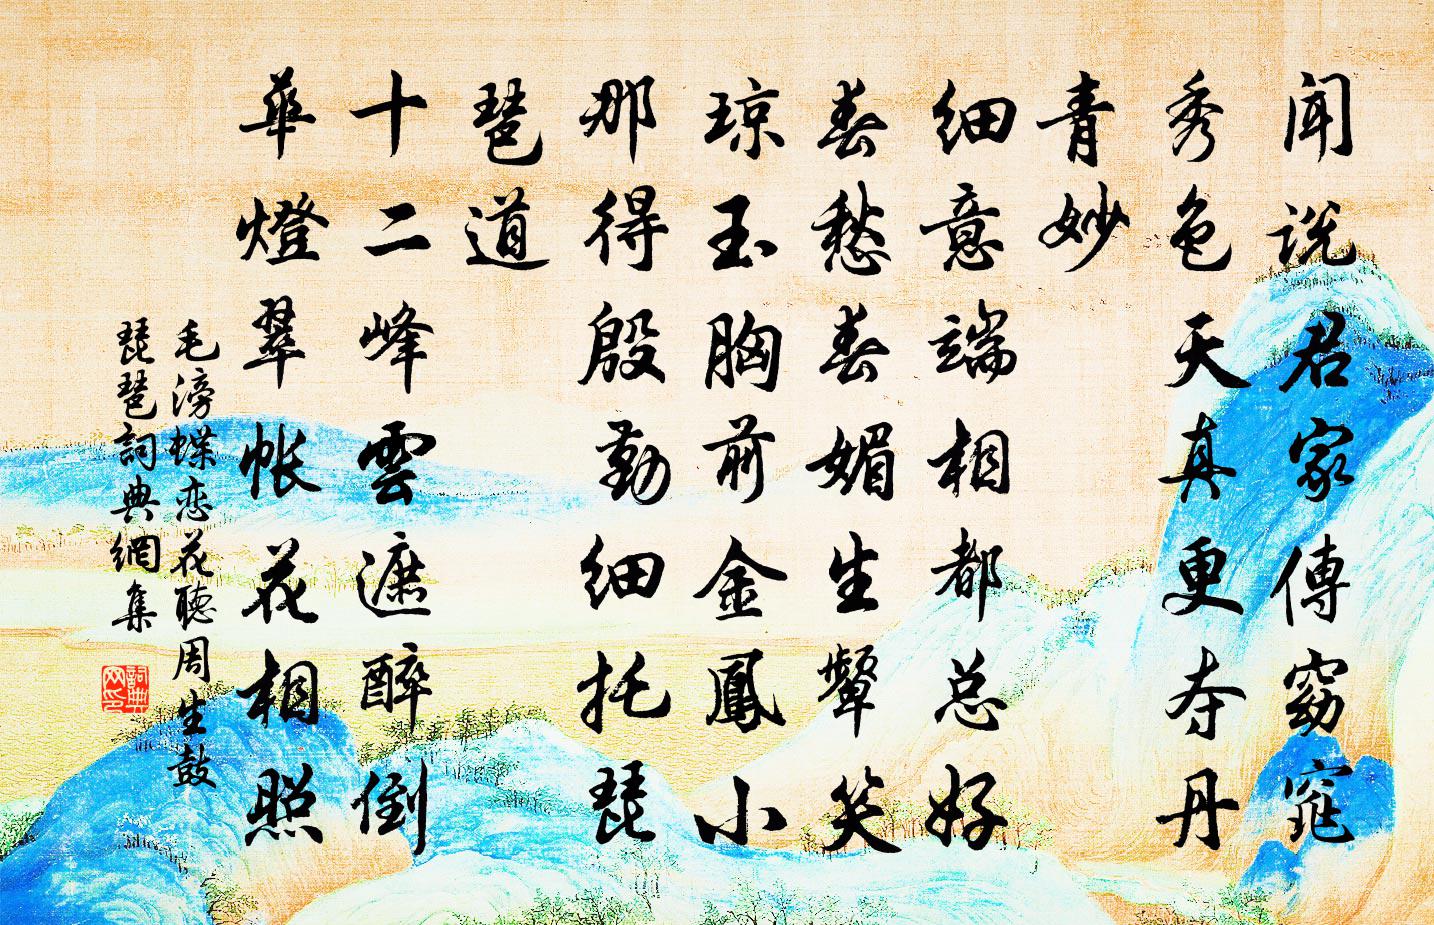 聞說君家傳窈窕
秀色天真更夺丹
青妙
細意端相都总好
春愁春媚生顰笑
琼玉胸前金鳳小
那得殷勤細托琵
琶道
十二峰雲遮醉倒
華燈翠帐花相照
毛滂蝶恋花聽周生鼓
琵琶詞典網集
詞典网印